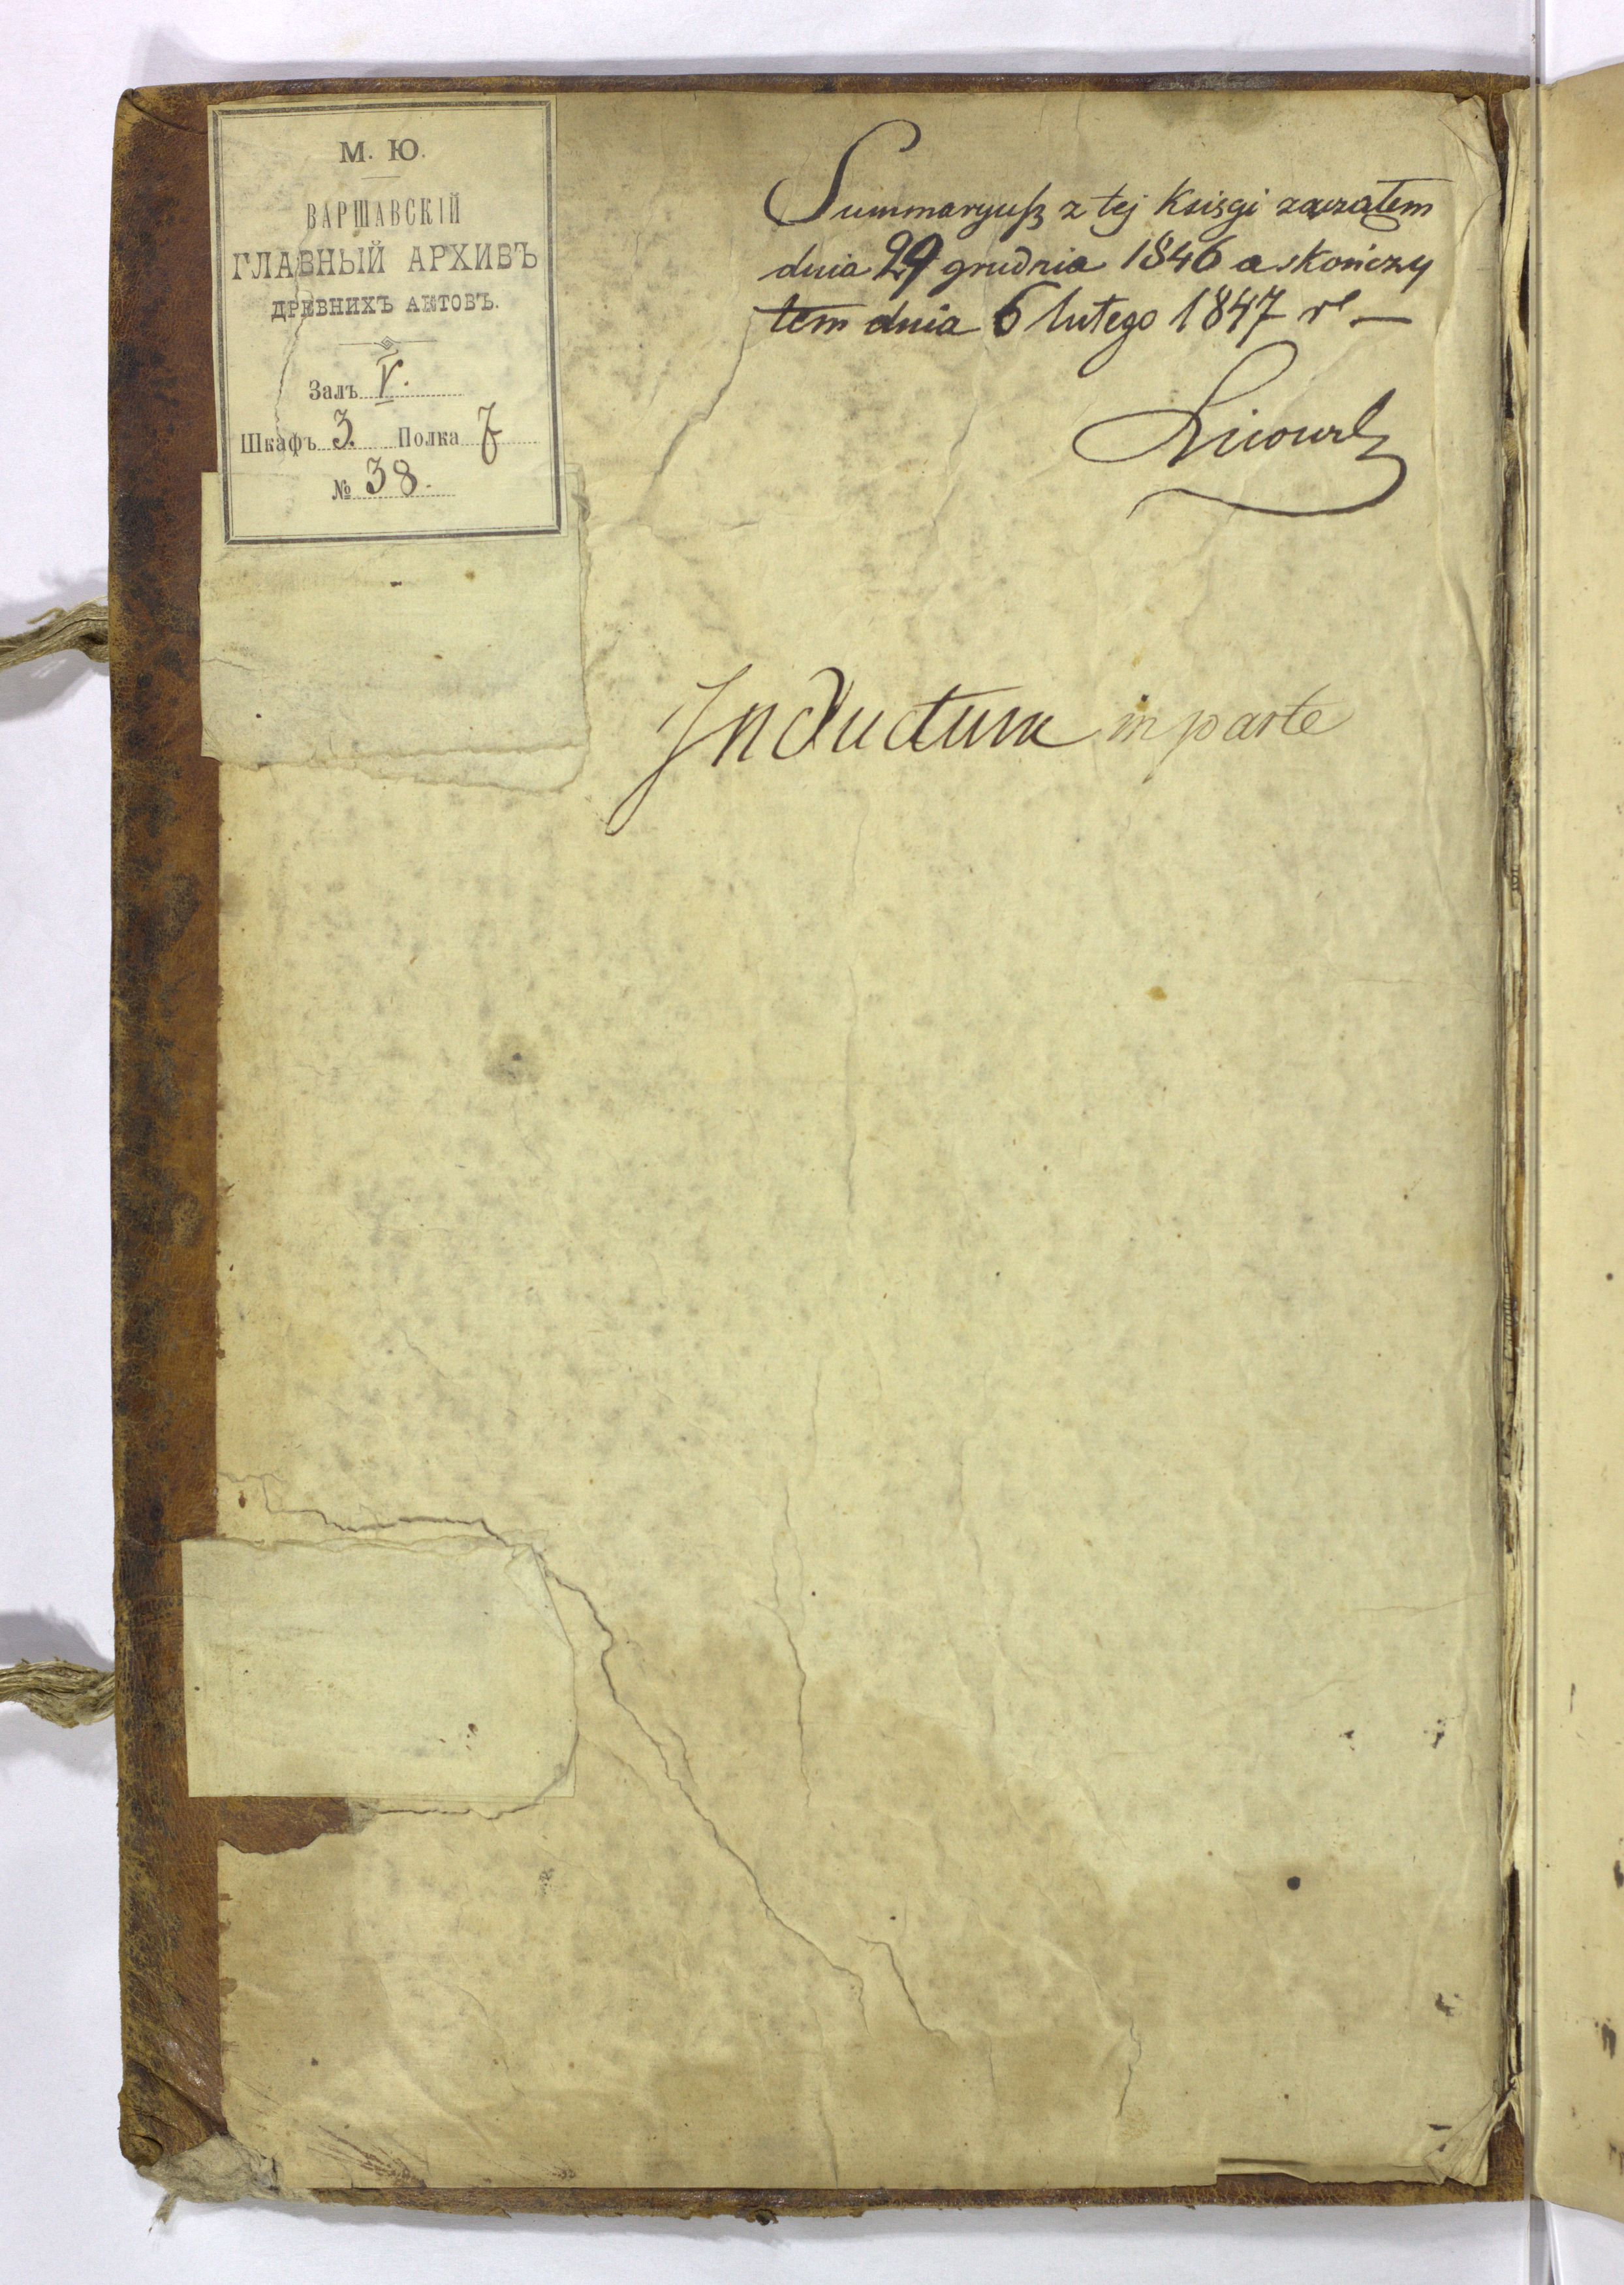 М. Ю.
ВАРШАВСКІЙ
ГЛАВНЫЙ АРХИВЪ
ДРЕВНИХЪ АКТОВЪ.
Залъ V.
Шкафъ 3. Полка
№ 38.
Summaryusz z tej Księgi zacząłem
dnia 29 grudnia 1846 a skończy
łem dnia 6 lutego 1847 r —
Inductum in parte